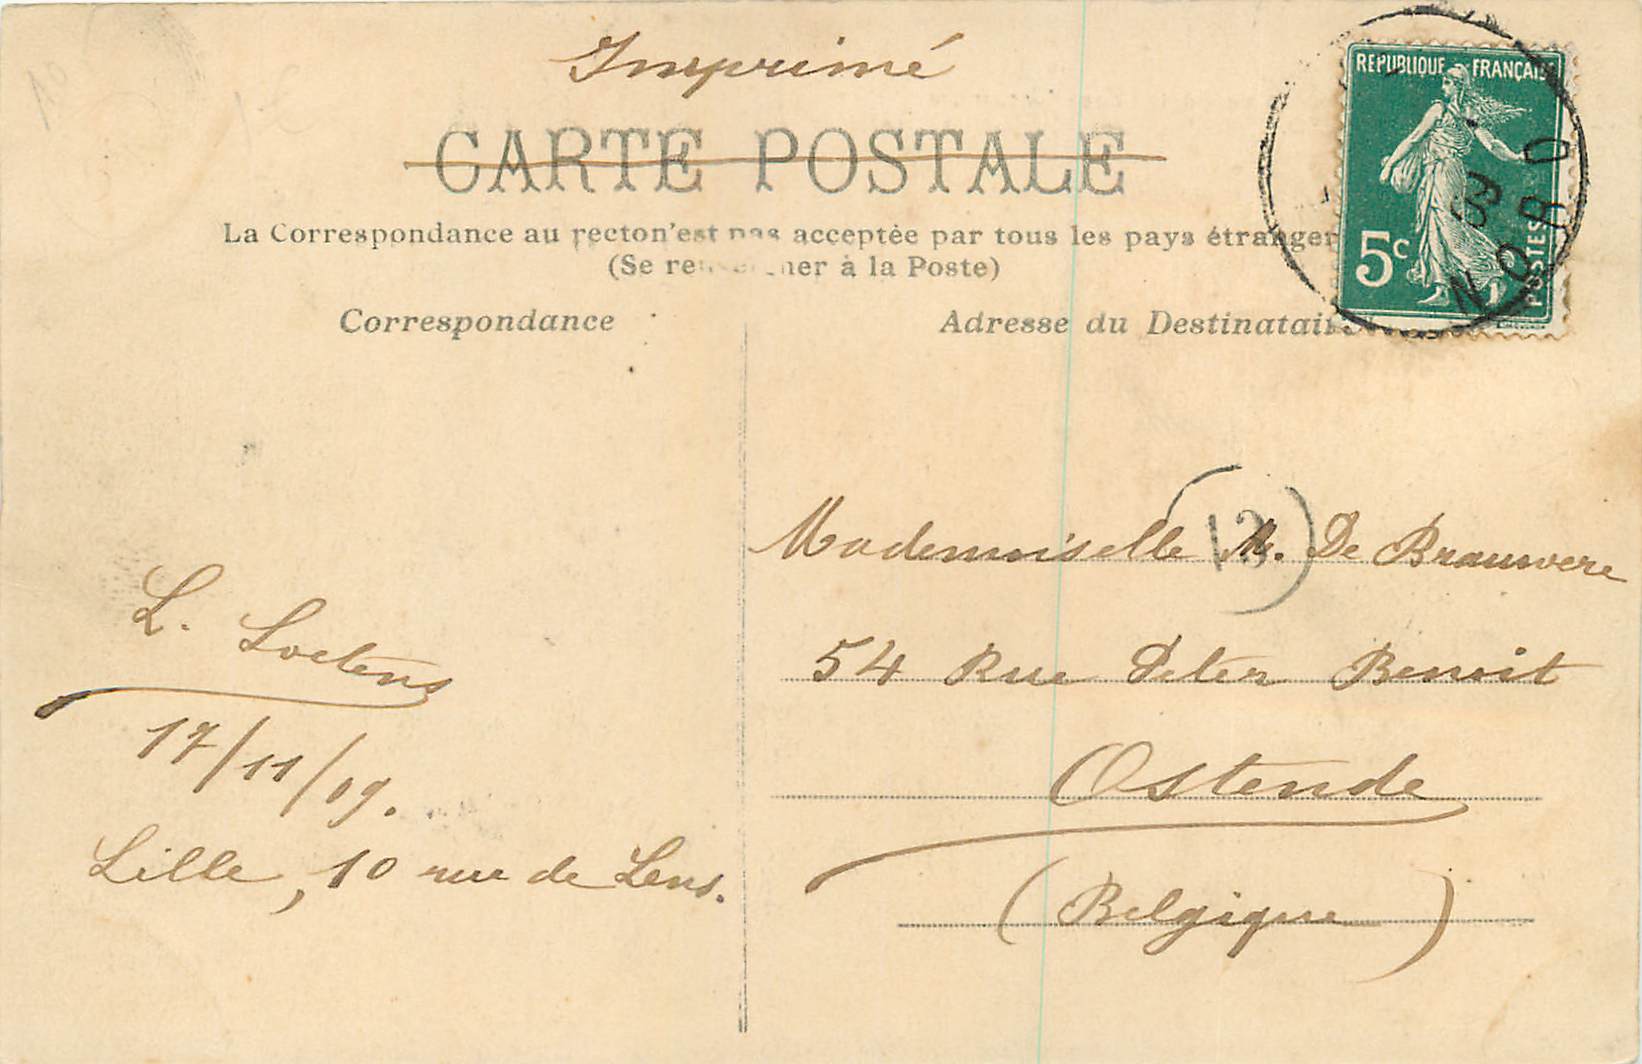 Imprimé
CARTE POSTALE
La Correspondance au recto n'est pas acceptée par tous les pays étranger
(Se re ner à la Poste)
Correspondance
Adresse du Destinatai
REPUBLIQUE FRANÇAIS
5c
POSTES
NORD
09
13
Mademoiselle M. De Brauwere
54 Rue Peter Benoit
Ostende
(Belgique)
L. Loetens
17/11/09.
Lille, 10 rue de Lens.
10